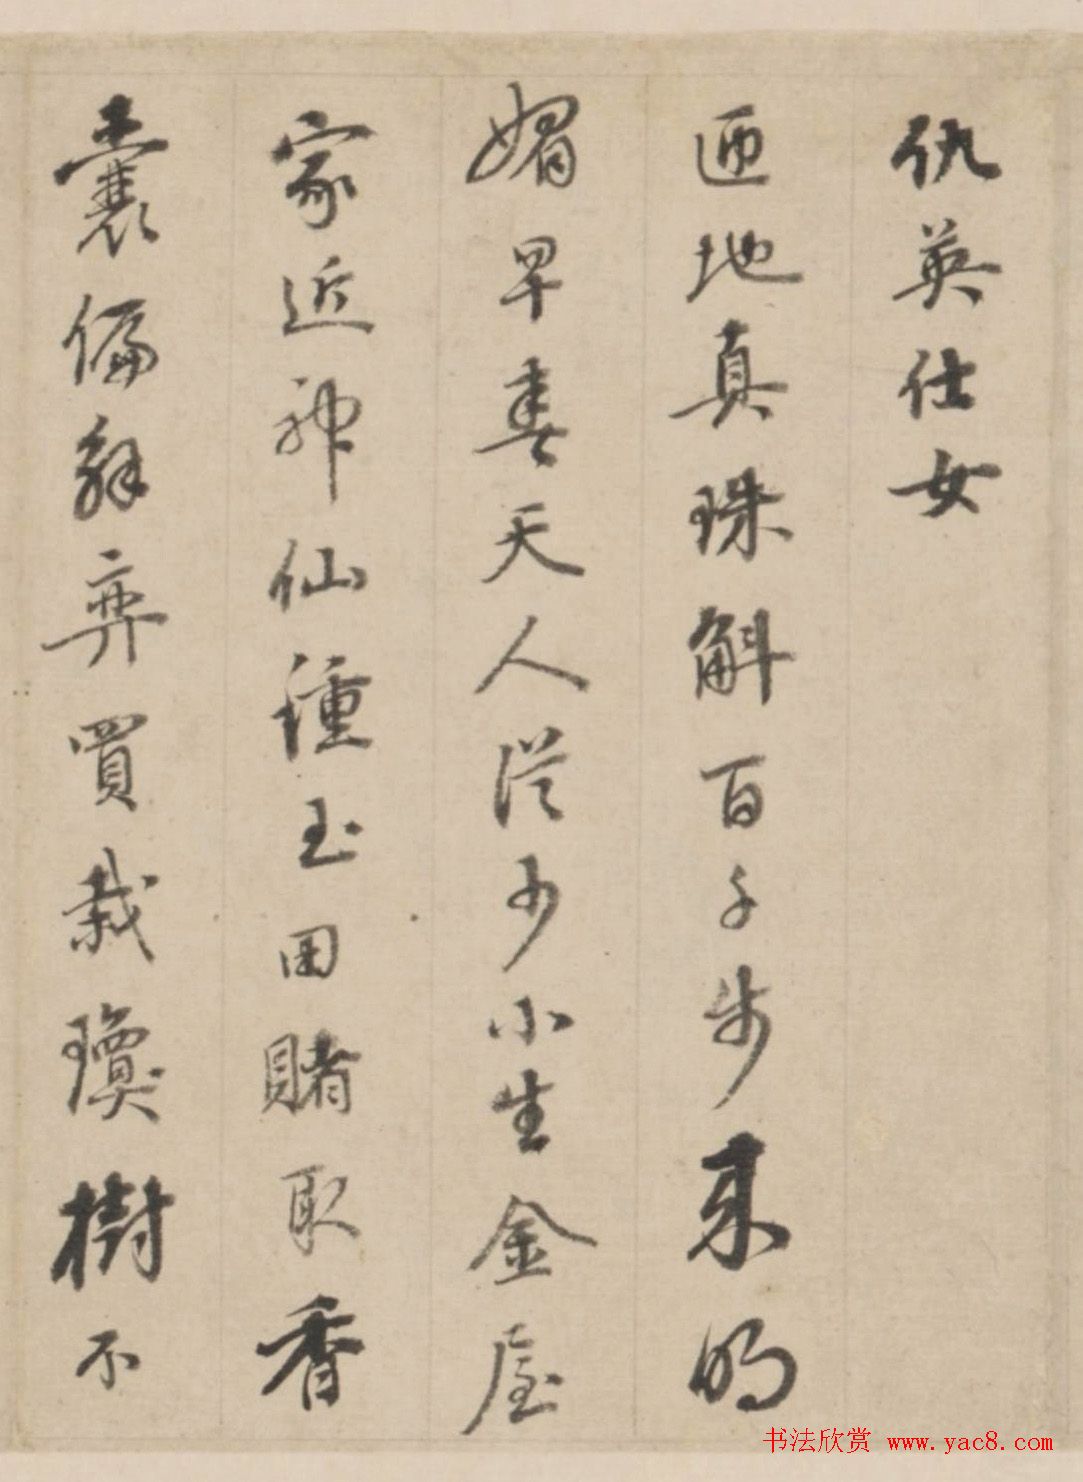 仇英仕女
匝地真珠斛百千步來明
媚早春天人從少小生金屋
家近神仙種玉田賭取香
囊偏解弄買栽瓊樹不
书法欣赏 www.yac8.com